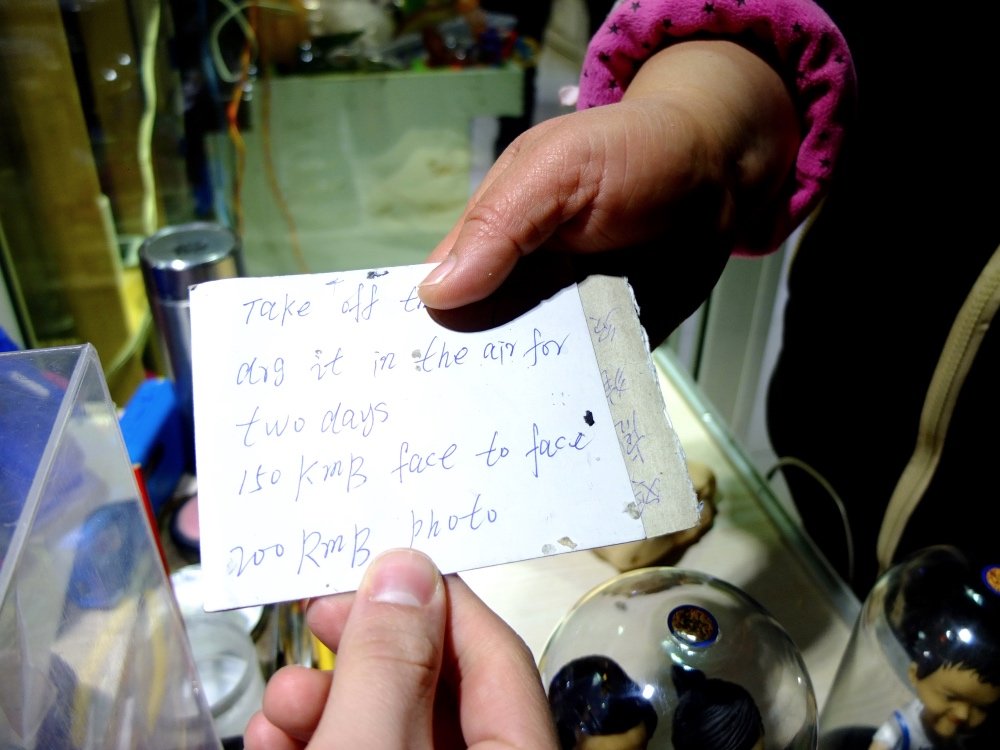 Take off th
dry it in the air for
two days
150 RmB face to face
200 RmB photo